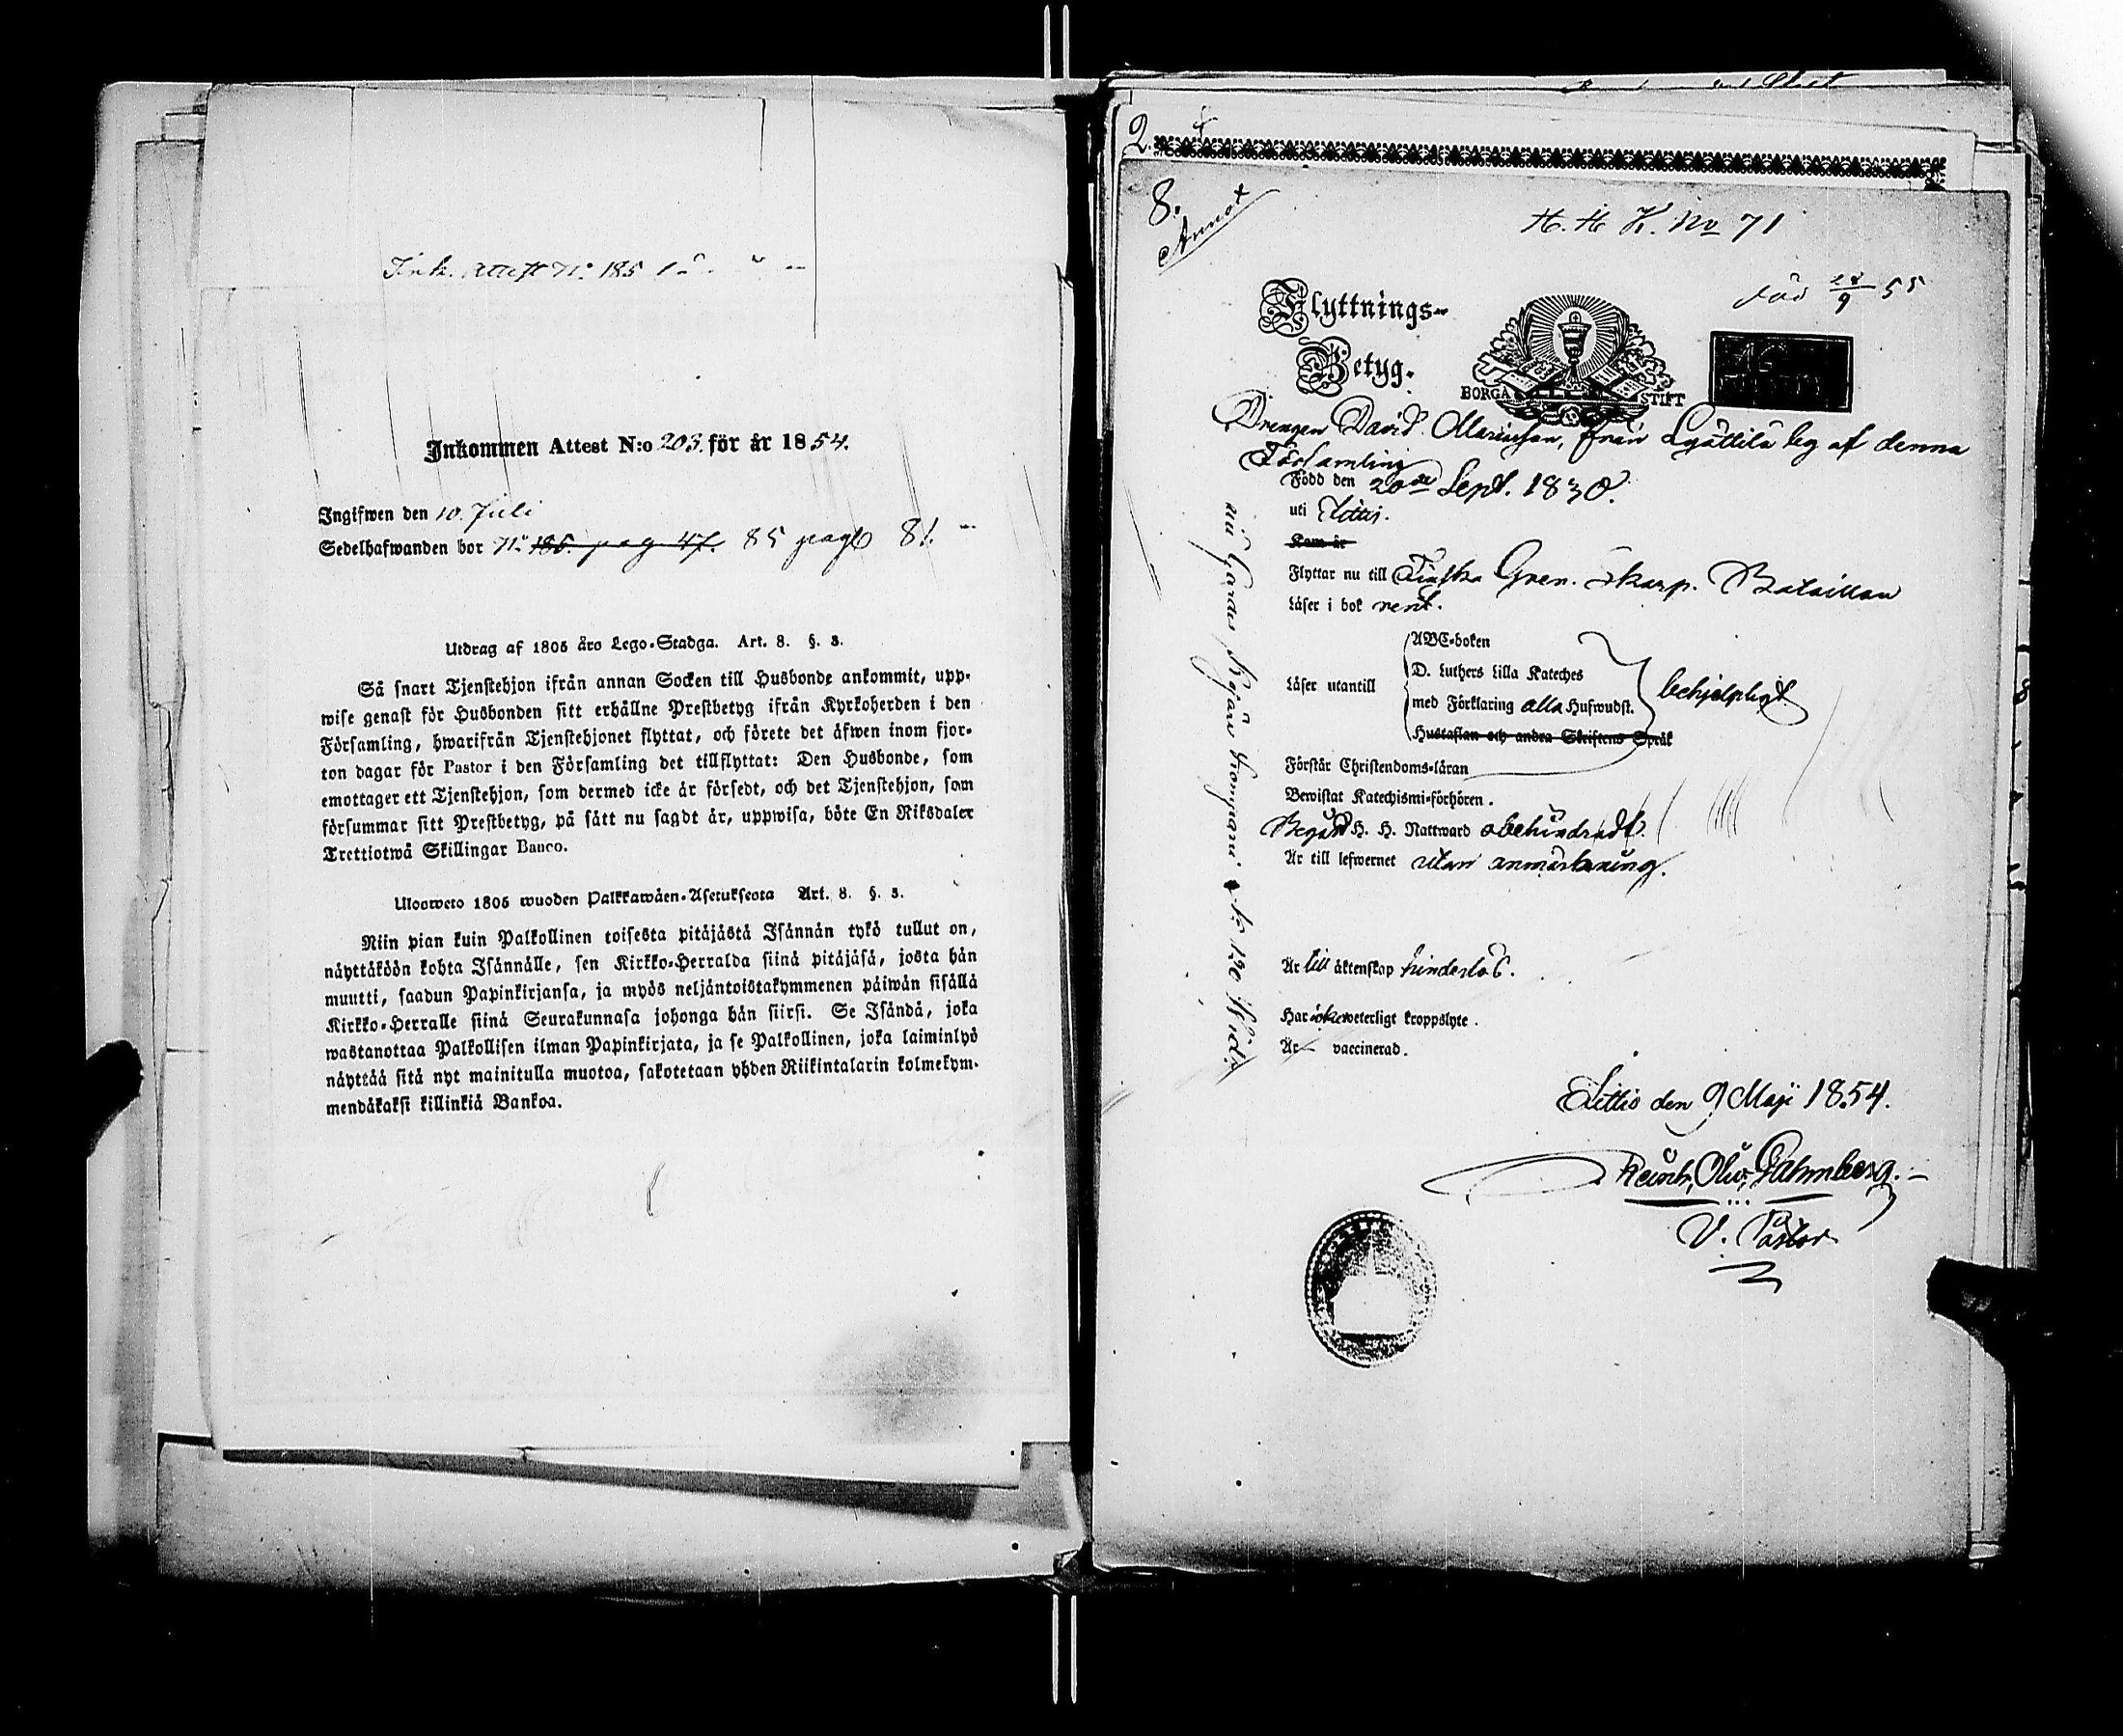 Inkommen Attest N:o 203. för år 1854.
Ingifwen den 10. Juli
Sedelhafwanden bor No 186. pag 47. 85 pag 81.
Utdrag af 1805 års Lego-Stadga. Art. 8. §. 3.
Så snart Tjenstehjon ifrån annan Socken till Husbonde ankommit, upp-
wise genast för Husbonden sitt erhållne Prestbetyg ifrån Kyrkoherden i den
Församling, hwarifrån Tjenstehjonet flyttat, och förete det äfwen inom fjor-
ton dagar för Pastor i den Församling det tillflyttat: Den Husbonde, som
emottager ett Tjenstehjon, som dermed icke är försedt, och det Tjenstehjon, som
försummar sitt Prestbetyg, på sätt nu sagdt är, uppwisa, böte En Riksdaler
Trettiotwå Skillingar Banco.
Ulosweto 1805 wuoden Palkkawäen-Asetuksesta Art. 8. §. 3.
Niin pian kuin Palkollinen toisesta pitäjästä Isännän tykö tullut on,
näyttäköön kohta Isännälle, sen Kirkko-Herralda siinä pitäjäsä, josta hän
muutti, saadun Papinkirjansa, ja myös neljäntoistakymmenen päiwän sisällä
Kirkko-Herralle siinä Seurakunnasa johonga hän siirsi. Se Isändä, joka
wastanottaa Palkollisen ilman Papinkirjata, ja se Palkollinen, joka laiminlyö
näyttää sitä nyt mainitulla muotoa, sakotetaan yhden Riikintalarin kolmekym-
mendäkaksi killinkiä Bankoa.
2.
8.
Annot
H. H. K. No 71
död 28/9 55
Flyttnings-
Betyg.
BORGÅ STIFT
Drengen David Mariuson, från Lyöttilä by af denna
Församling
Född den 20de Sept. 1830.
uti Littis.
Kom år
Flyttar nu till Finska Gren. Skarp. Bataillon
Läser i bok rent.
Läser utantill
ABC-boken
D. Luthers Lilla Kateches
med Förklaring alla Hufwudst.
Hustaflan och andra Skriftens Språk
behjelpligt
Förstår Christendoms-läran
Bewistat Katechismi-förhören.
Begått H. H. Nattward obehindradt.
Är till lefwernet utan anmärkning.
Är till äktenskap hinderslös.
Har icke weterligt kroppslyte.
Är vaccinerad.
Littis den 9 Maji 1854.
Palmberg.
V. Pastor